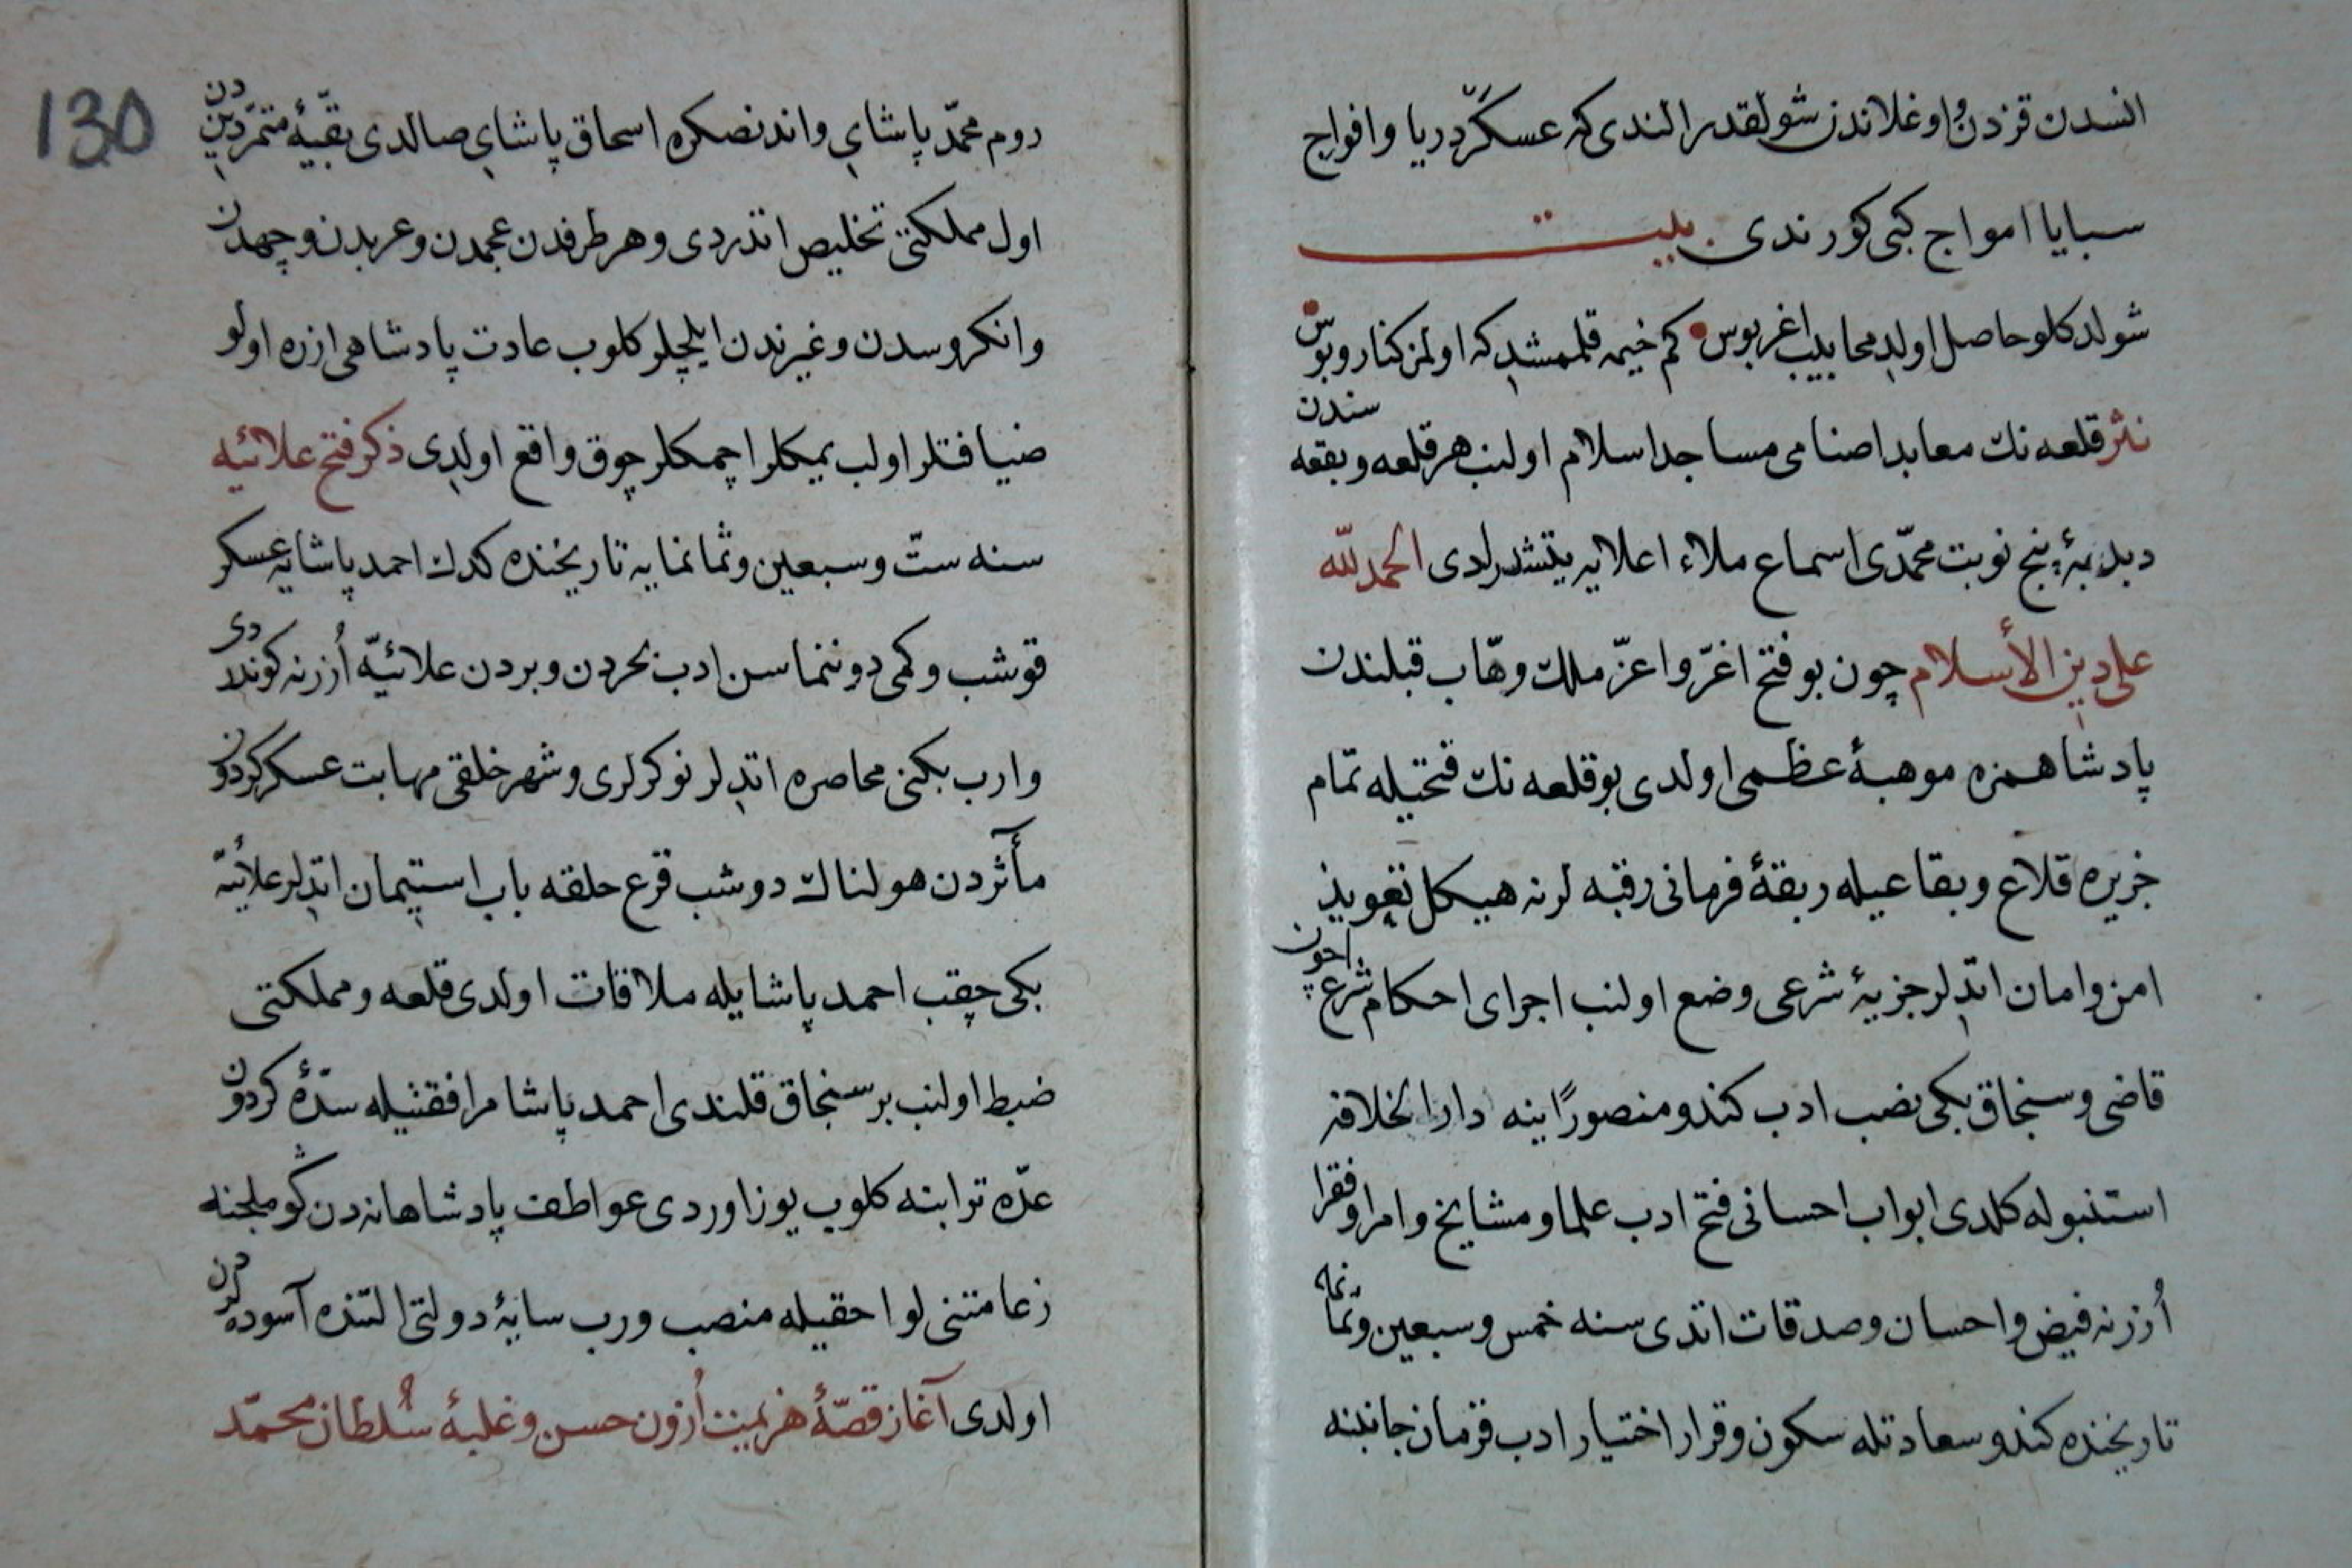 انسدن قزدن اوغلاندن شولقدر الندی که عسکر دریا وافواج
سبایا امواج کبی کورندی بیت
شولدکلو حاصل اولدی محابیب اغربوس کم خیمه قلمشدی که اولمز کنار وبوس
نثر قلعه نك معابد اصنامی مساجد اسلام اولنب هر قلعه وبقعه سندن
دبدبۀ پنج نوبت محمّدی اسماع ملاء اعلایه یتشدرلدی الحمد لله
علی دین الأسلام چون بو فتح اغرّ واعزّ ملك وهّاب قبلندن
پادشاهمزه موهبۀ عظمی اولدی بو قلعه نك فتحیله تمام
جزیره قلاع وبقاعیله ربقۀ فرمانی رقبه لرنه هیکل تعویذ
امن وامان اتدیلر جزیۀ شرعی وضع اولنب اجرای احکام شرع اچون
قاضی وسنجاق بکی نصب ادب کندو منصورًا ینه دار الخلافه
استنبوله کلدی ابواب احسانی فتح ادب علما ومشایخ وامرا وفقرا
اُزرنه فیض واحسان وصدقات اتدی سنه خمس وسبعین وثمانمایه
تاریخنده کندو سعادتله سکون وقرار اختیار ادب قرمان جانبنه
130
روم محمّد پاشای واندنصکره اسحاق پاشای صالدی بقیّۀ متمرّدیندن
اول مملکتی تخلیص اتدردی وهر طرفدن عجمدن وعربدن وچهدن
وانکروسدن وغیرندن ایلچیلر کلوب عادت پادشاهی ازره اولو
ضیافتلر اولب یمکلر اچمکلر چوق واقع اولدی ذکر فتح علائیه
سنه ستّ وسبعین وثمانمایه تاریخنده کدك احمد پاشایه عسکر
قوشب وکمی دوننماسن ادب بحردن وبردن علائیّه اُزرنه کوندردی
وارب بکنی محاصره اتدیلر نوکرلری وشهر خلقی مهابت عسکر کردون
مأثردن هولناك دوشب قرع حلقه باب استیمان اتدیلر علائیّه
بکی چقب احمد پاشایله ملاقات اولدی قلعه ومملکتی
ضبط اولنب بر سنجاق قلندی احمد پاشا مرافقتیله سدّۀ کردون
عدّه ترابنه کلوب یوز اوردی عواطف پادشاهانه دن کوملجنه
زعامتنی لوا حقیله منصب ورب سایۀ دولتی التنده آسوده لردن
اولدی آغاز قصّۀ هزیمت اُزون حسن وغلبۀ سُلطان محمّد